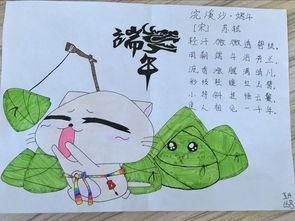 浣溪沙·端午
[宋] 苏轼
端午
轻汗微微透碧纨
明朝端午浴芳兰
流香涨腻满晴川
彩线轻缠红玉臂
小符斜挂绿云鬟
佳人相见一千年